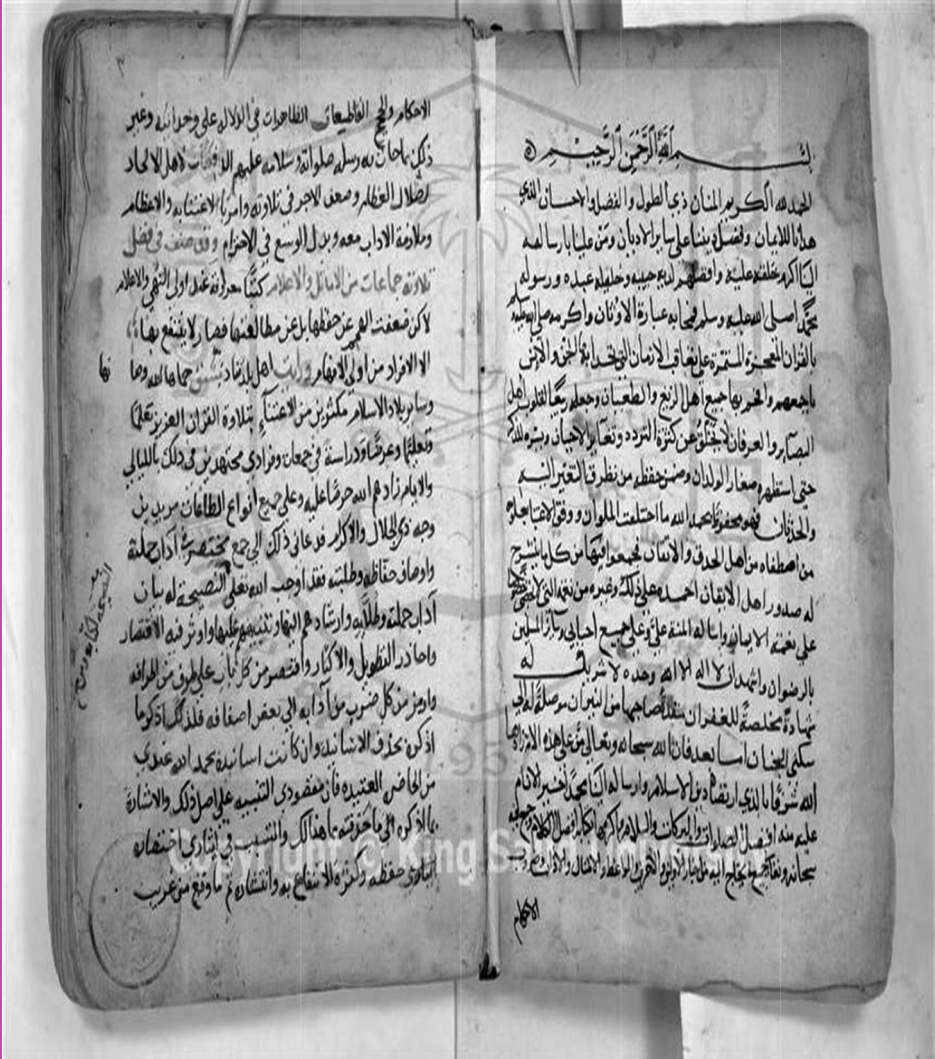 بسم الله الرحمن الرحيم
الحمد لله الكريم المنان ذي الطول والفضل والاحسان الذي
هدانا للايمان وفضل ديننا على ساير الاديان ومن علينا بارساله
الينا اكرم خلقه عليه وافضلهم لديه حبيبه وخليله عبده ورسوله
محمدا صلى الله عليه وسلم فمحا به عبادة الاوثان واكرمه صلى الله عليه وسلم
بالقران المعجزة المستمرة على تعاقب الازمان التي تحدا بها الجن والانس
باجمعهم وافحم بها جميع اهل الزيغ والطغيان وجعله ربيعا لقلوب اهل
البصاير والعرفان لا يخلق عن كثرة التردد وتغاير الاحيان ويسره للذكر
حتى استظهره صغار الولدان وضمن حفظه من تطرق التغير اليه
والحدثان فهو محفوظ بحمد الله ما اختلفت الملوان ووفق للاعتنا بعلومه
من اصطفاه من اهل الحذق والاتقان فجمعوا فيها من كل ما ينشرح
له صدور اهل الايقان احمده على ذلك وغيره من نعمه التي لا تحصى
على نعمة الايمان واساله المنة علي وعلى جميع احبابي وساير المسلمين
بالرضوان واشهد ان لا اله الا الله وحده لا شريك له
شهادة مخلصة للغفران منقذة صاحبها من النيران موصلة له الى
سكنى الجنان اما بعد فان الله سبحانه وتعالى من على هذه الامة
الله شرفا بالذي ارتضاه دين الاسلام وارساله الينا محمدا خير الانام
عليه منه افضل الصلوات والبركات والسلام واكرمها بكتابه افضل الكلام وجمع فيه
سبحانه وتعالى جميع ما يحتاج اليه من اخبار الاولين والاخرين والمواعظ والامثال والاداب وضروب
الاحكام
الاحكام والحجج القاطعات الظاهرات في الدلالة على وحدانيته وغير
ذلك مما جات به رسله صلوات الله وسلامه عليهم الدامغات لاهل الالحاد
الضلال الطغام وضعف الاجر في تلاوته وامرنا بالاعتنا به والاعظام
وملازمة الاداب معه وبذل الوسع في الاحترام وقد صنف في فضل
تلاوته جماعات من الاماثل والاعلام كتبا معروفة عند اولى النهى والاحلام
لاكن ضعفت الهمم عن حفظها بل عن مطالعتها فصار لا ينتفع بها
الا الافراد من اولي الافهام ورايت اهل بلدنا دمشق حماها الله وصانها
وساير بلاد الاسلام مكثرين من الاعتناء بتلاوة القران العزيز تعلما
وتعليما وعرضا ودراسة في جماعات وفرادى مجتهدين في ذلك بالليالي
والايام زادهم الله حرصا عليه وعلى جميع انواع الطاعات مريدين
وجه ذي الجلال والاكرام فدعاني ذلك الى جمع مختصر في اداب حملته
واوصاف حفاظه وطلبته فقد اوجب الله تعالى النصيحة له بيان
اداب حملته وطلابه وارشادهم اليها وتنبيههم عليها واوثر فيه الاختصار
واحاذر التطويل والاكثار واقتصر من كل باب على طرف من اطرافه
وارمز من كل ضرب من ادابه الى بعض اصنافه فلذلك اذكر ما
اذكره بحذف الاسانيد وان كانت اسانيده بحمد الله عندي
من الحاضر العتيدة فان مقصودي التنبيه على اصل ذلك والاشارة
بما اذكره الى ما حذفته مما هنالك والسبب في ايثاري اختصاره
ايثاري حفظه وكثرة الانتفاع به وانتشاره ثم ما وقع من غريب
Copyright © King Saud University